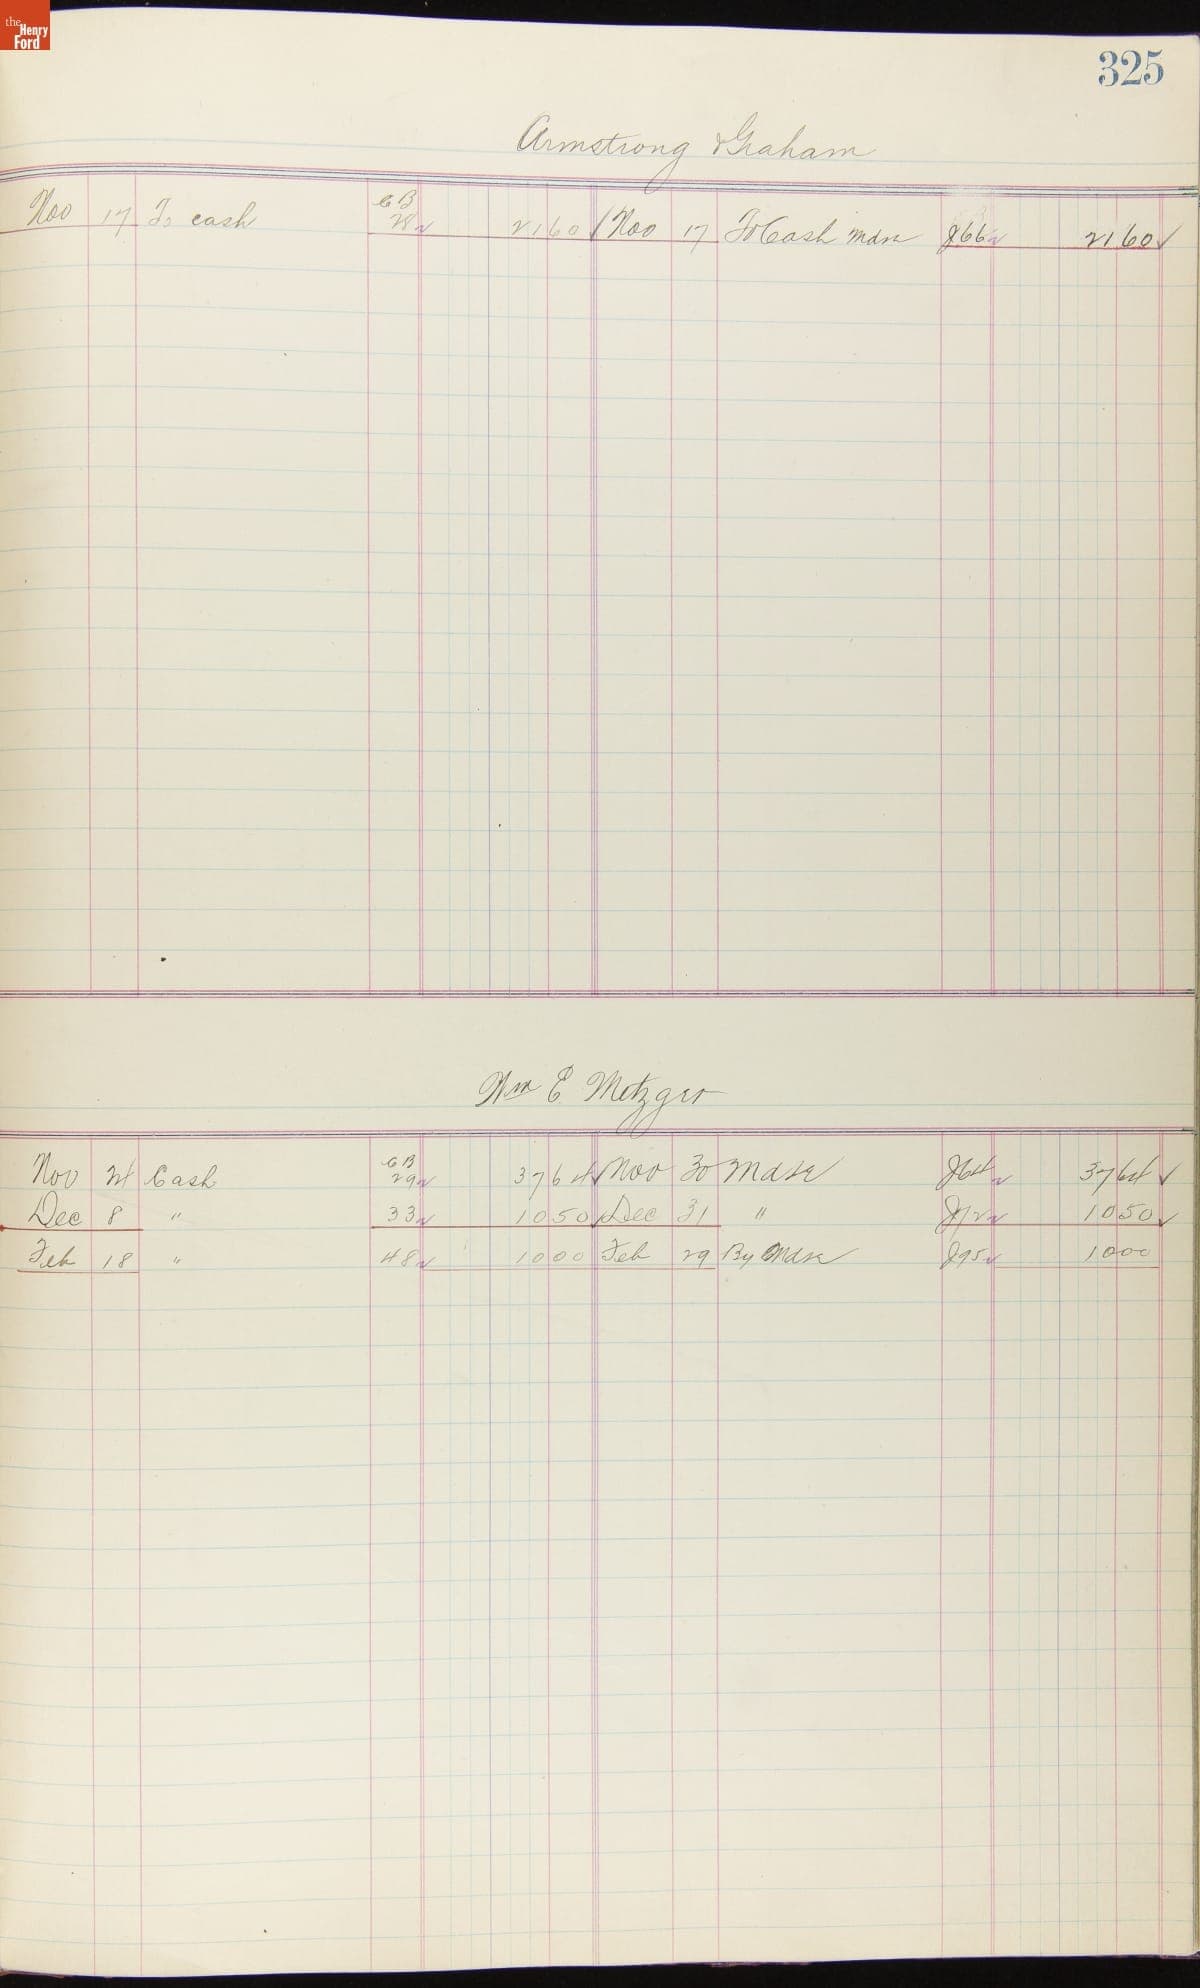 the Henry Ford
325
Armstrong & Graham
Nov 17 To cash CB 28 21 60 Nov 17 To Cash mdse J66 21 60
Wm E. Metzger
Nov 24 Cash CB 29 37 64 Nov 30 Mdse J64 37 64
Dec 8 " 33 10 50 Dec 31 " J72 10 50
Feb 18 " 48 10 00 Feb 29 By Mdse J95 10 00